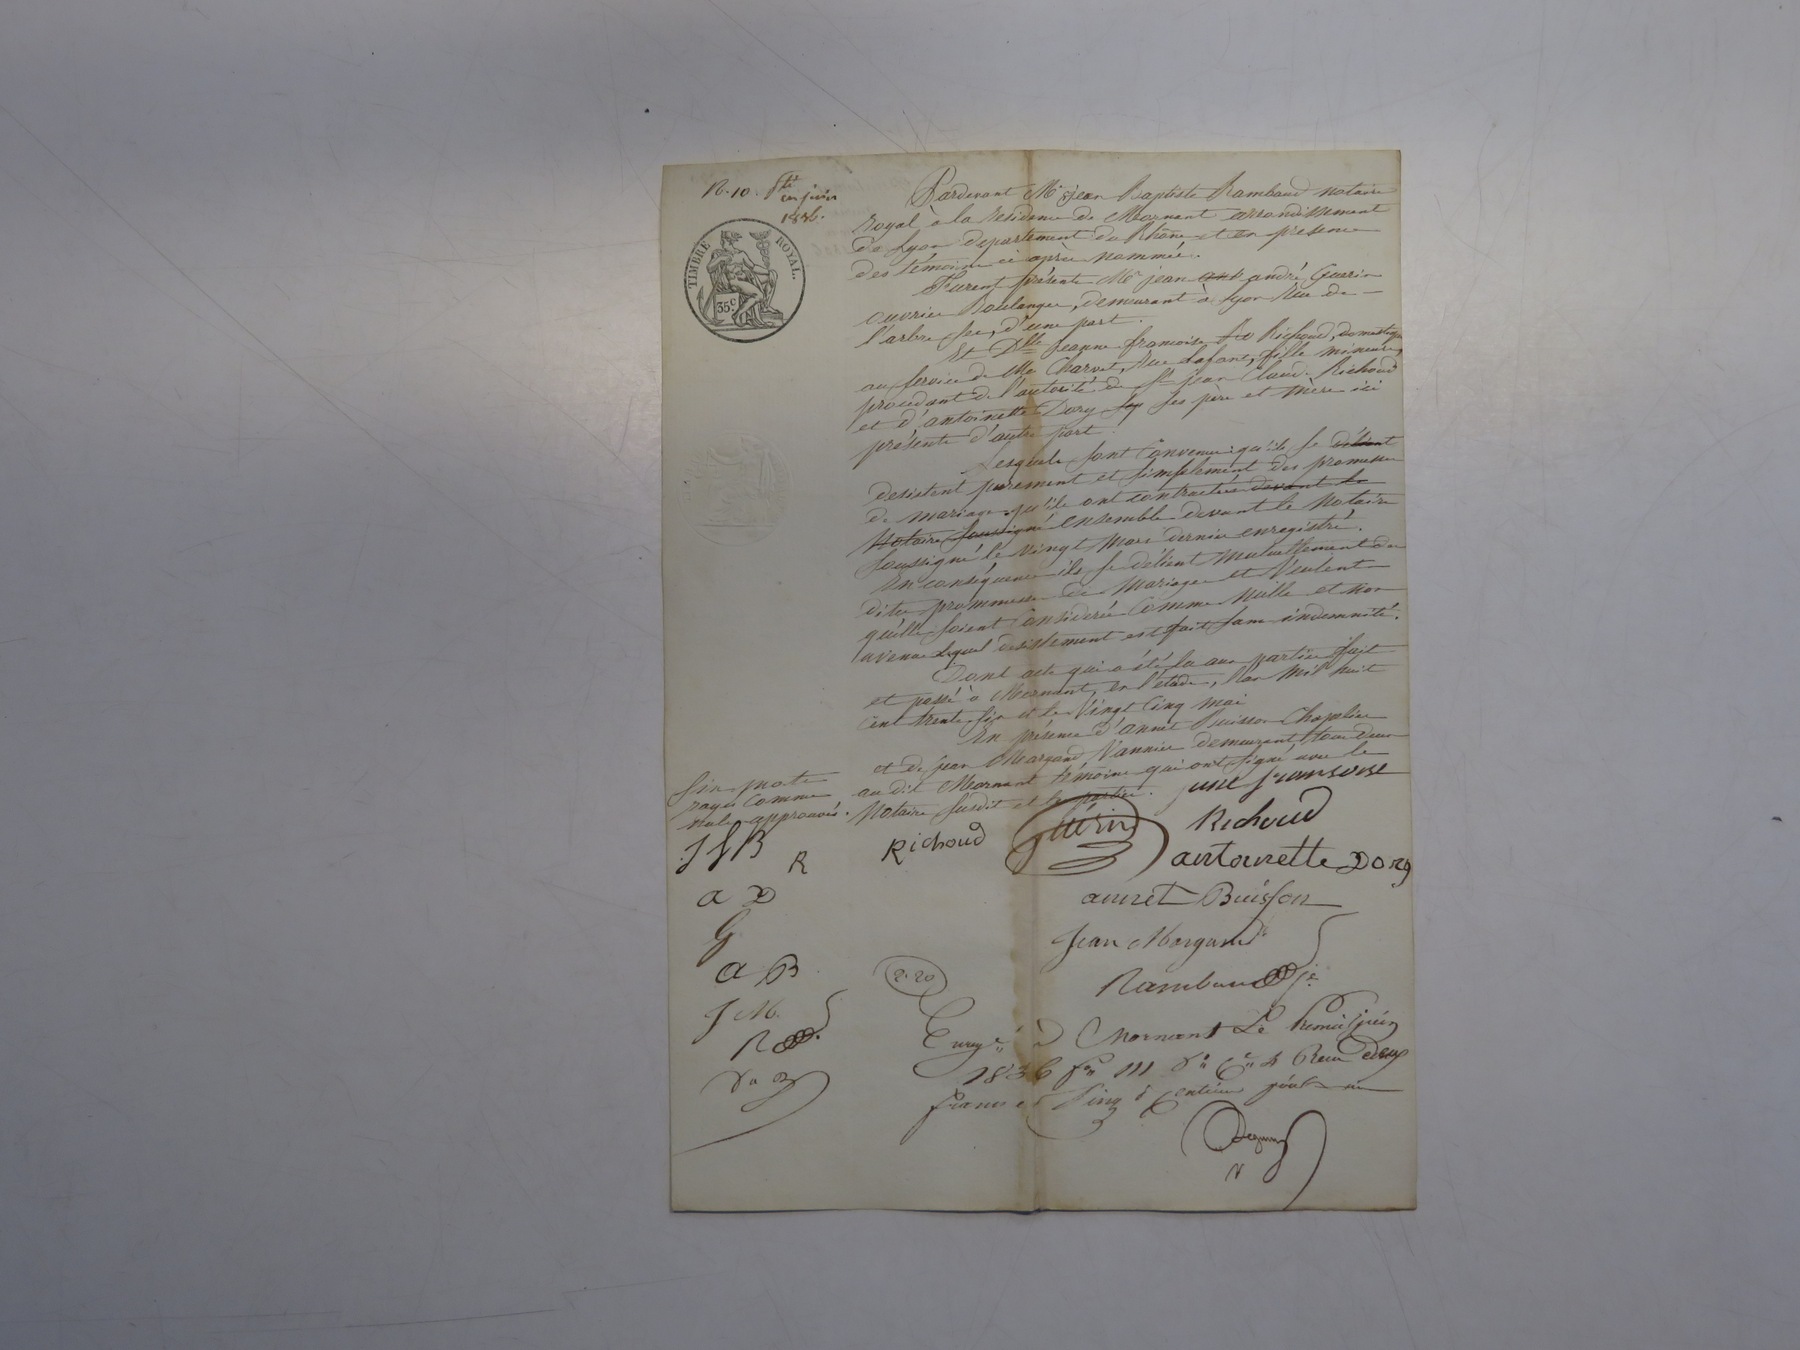 N. 10.
en juin
1836.
TIMBRE ROYAL.
35.c
Pardevant Me jean Baptiste Rambaud notaire
royal à la residence de Mornant arrondissement
de Lyon departement du Rhône et en présence
des témoins ci après nommés.
Furent présents Mr jean andré Guerin
ouvrier Boulanger, demeurant à Lyon Rue de
l'arbre sec, d'une part.
Et Dlle jeanne francoise Richoud, domestique
au service de Charvet, Rue lafont, fille mineure,
procedant de l'autorité de Sr jean Claude Richoud
et d'antoinette Dory ses père et mère ici
présents d'autre part.
Lesquels sont convenus qu'ils se délient
desistent purement et simplement des promesses
de mariage qu'ils ont contractées devant le
Notaire soussigné ensemble devant le Notaire
soussigné le vingt mars dernier enregistré.
En conséquence ils se délient mutuellement des
dites prommesses de mariage et veulent
quelles soient considerées comme nulle et non
avenue lequel desistement est fait sans indemnité.
Dont acte qui a été lu aux parties fait
et passé à Mornant, en l'étude, l'an mil huit
cent trente six et le vingt cinq mai
En présence d'annet Buisson Chapelier
et de jean Margand, Vannier demeurant tous deux
au dit Mornant témoins qui ont signé avec le
Notaire susdit et les parties.
Six mots
rayés comme
nuls approuvés.
june fransoise
Richoud
Richoud
Guérin
antoinette Dory
annet Buisson
Jean Margand
Rambaud je.
J f R
R
a D
G
a B
J M.
R
2.20
Enregé à Mornant Le Premier Juin
1836 fo 111 Vo Ce 4 Recu deux
francs et vingt Centimes